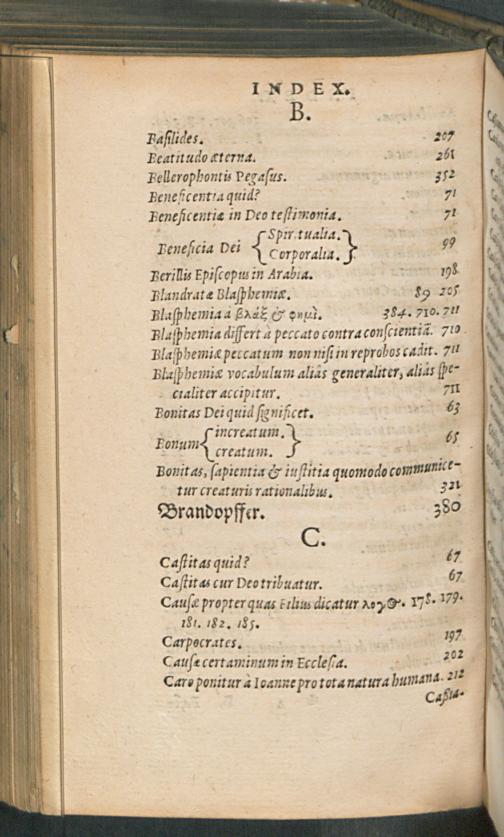 INDEX.
B.
Baſilides. 207
Beatitudo æterna. 261
Bellerophontis Pegaſus. 352
Beneficentia quid? 71
Beneficentiæ in Deo teſtimonia. 71
Beneficia Dei { Spiritualia. Corporalia. } 99
Berillis Epiſcopus in Arabia. 198
Blandratæ Blaſphemiæ. 89 205
Blaſphemia à βλὰξ & φημὶ. 384. 710. 711
Blaſphemia differt à peccato contra conſcientiā. 710
Blaſphemiæ peccatum non niſi in reprobos cadit. 711
Blaſphemiæ vocabulum aliàs generaliter, aliàs ſpe-
cialiter accipitur. 711
Bonitas Dei quid ſignificet. 63
Bonum { increatum. creatum. } 65
Bonitas, ſapientia & iuſtitia quomodo communice-
tur creaturis rationalibus. 321
Brandopffer. 380
C.
Caſtitas quid? 67
Caſtitas cur Deo tribuatur. 67
Cauſæ propter quas Filius dicatur λογος. 178. 179.
181. 182. 185.
Carpocrates. 197
Cauſæ certaminum in Eccleſia. 202
Caro ponitur à Ioanne pro tota natura humana. 212
Caſſia-